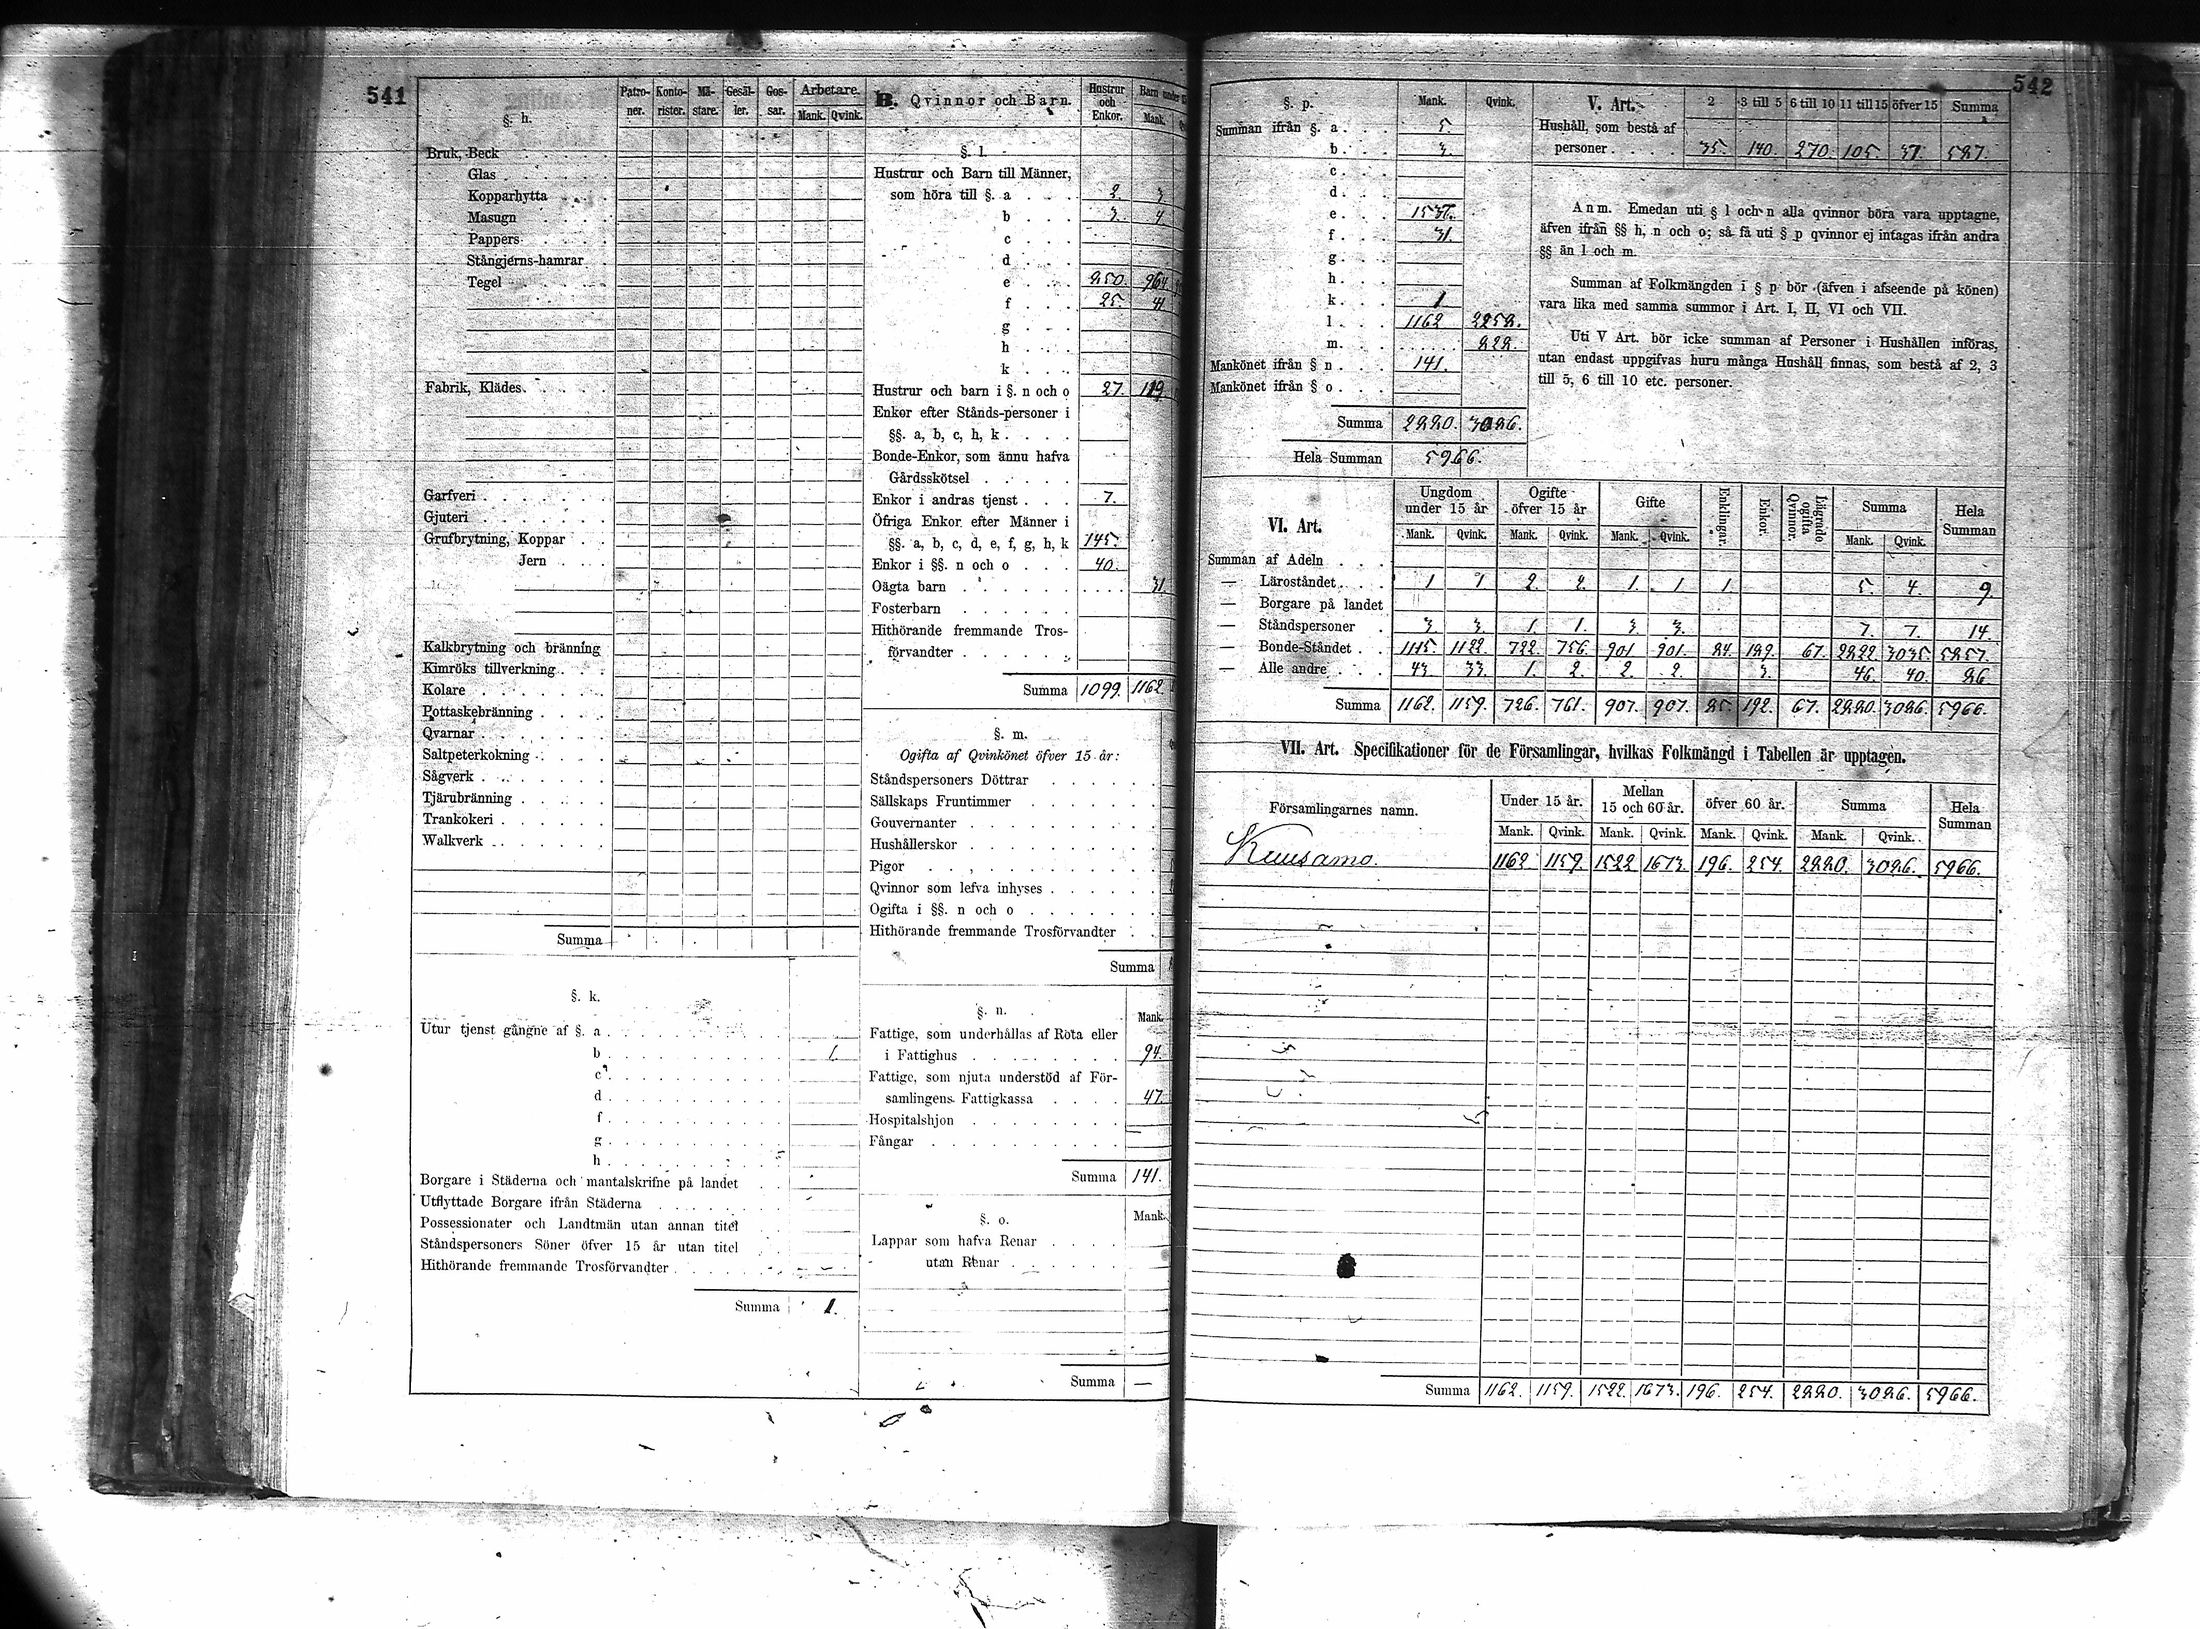 541
§. h.
Patroner. Kontorister. Mästare. Gesäller. Gossar. Arbetare. Mank. Qvink.
Bruk, Beck
Glas
Kopparhytta
Masugn
Pappers
Stångjerns-hamrar
Tegel
Fabrik, Klädes
Garfveri
Gjuteri
Grufbrytning, Koppar
Jern
Kalkbrytning och bränning
Kimröks tillverkning
Kolare
Pottaskebränning
Qvarnar
Saltpeterkokning
Sågverk
Tjärubränning
Trankokeri
Walkverk
Summa
§. k.
Utur tjenst gångne af §. a
b 1.
c
d
f
g
h
Borgare i Städerna och mantalskrifne på landet
Utflyttade Borgare ifrån Städerna
Possessionater och Landtmän utan annan titel
Ståndspersoners Söner öfver 15 år utan titel
Hithörande fremmande Trosförvandter
Summa 1.
B. Qvinnor och Barn. Hustrur och Enkor. Barn under Mank.
§. l.
Hustrur och Barn till Männer,
som höra till §. a 2. 3
b 3. 4
c
d
e 850. 964
f 25. 41
g
h
k
Hustrur och barn i §. n och o 27. 119
Enkor efter Stånds-personer i
§§. a, b, c, h, k
Bonde-Enkor, som ännu hafva
Gårdsskötsel
Enkor i andras tjenst 7.
Öfriga Enkor efter Männer i
§§. a, b, c, d, e, f, g, h, k 145.
Enkor i §§. n och o 40.
Oägta barn 31.
Fosterbarn
Hithörande fremmande Trosförvandter
Summa 1099. 1162.
§. m.
Ogifta af Qvinkönet öfver 15 år:
Ståndspersoners Döttrar
Sällskaps Fruntimmer
Gouvernanter
Hushållerskor
Pigor
Qvinnor som lefva inhyses
Ogifta i §§. n och o
Hithörande fremmande Trosförvandter
Summa
§. n. Mank.
Fattige, som underhållas af Rota eller
i Fattighus 94.
Fattige, som njuta understöd af Församlingens Fattigkassa 47.
Hospitalshjon —
Fångar
Summa 141.
§. o. Mank.
Lappar som hafva Renar
utan Renar
Summa —
542
§. p. Mank. Qvink.
Summan ifrån §. a 5.
b 3.
c
d
e 1537.
f 31.
g
h
k 1
l 1162 2252.
m
Mankönet ifrån § n 141.
Mankönet ifrån § o
Summa
Hela Summan 5966.
V. Art. 2 3 till 5 6 till 10 11 till 15 öfver 15 Summa
Hushåll, som bestå af
personer 35. 140. 270. 105. 37. 587.
Anm. Emedan uti § l och n alla qvinnor böra vara upptagne,
äfven ifrån §§ h, n och o; så få uti § p qvinnor ej intagas ifrån andra
§§ än l och m.
Summan af Folkmängden i § p bör (äfven i afseende på könen)
vara lika med samma summor i Art. I, II, VI och VII.
Uti V Art. bör icke summan af Personer i Hushållen införas,
utan endast uppgifvas huru många Hushåll finnas, som bestå af 2, 3
till 5, 6 till 10 etc. personer.
VI. Art. Ungdom under 15 år Ogifte öfver 15 år Gifte Enklingar. Enkor. Lägrade ogifta Qvinnor. Summa Hela Summan
Mank. Qvink. Mank. Qvink. Mank. Qvink. Mank. Qvink.
Summan af Adeln
— Läroståndet 1 1 2. 2. 1. 1 1 5. 4. 9.
— Borgare på landet
— Ståndspersoner 3 3. 1. 1. 3. 3. 7. 7. 14.
— Bonde-Ståndet 1115. 1122. 722. 756. 901 901. 24. 189. 67.
— Alle andre 43. 33. 1. 2. 2. 2. 3. 46. 40. 86
Summa 1162. 1159. 726. 761. 907. 907. 25. 192. 67. 5966.
VII. Art. Specifikationer för de Församlingar, hvilkas Folkmängd i Tabellen är upptagen.
Församlingarnes namn. Under 15 år. Mellan 15 och 60 år. öfver 60 år. Summa Hela Summan
Mank. Qvink. Mank. Qvink. Mank. Qvink. Mank. Qvink.
Kuusamo. 1162. 1159. 1522. 1673. 196. 254. 5966.
Summa 1162. 1159. 1522. 1673. 196. 254. 5966.